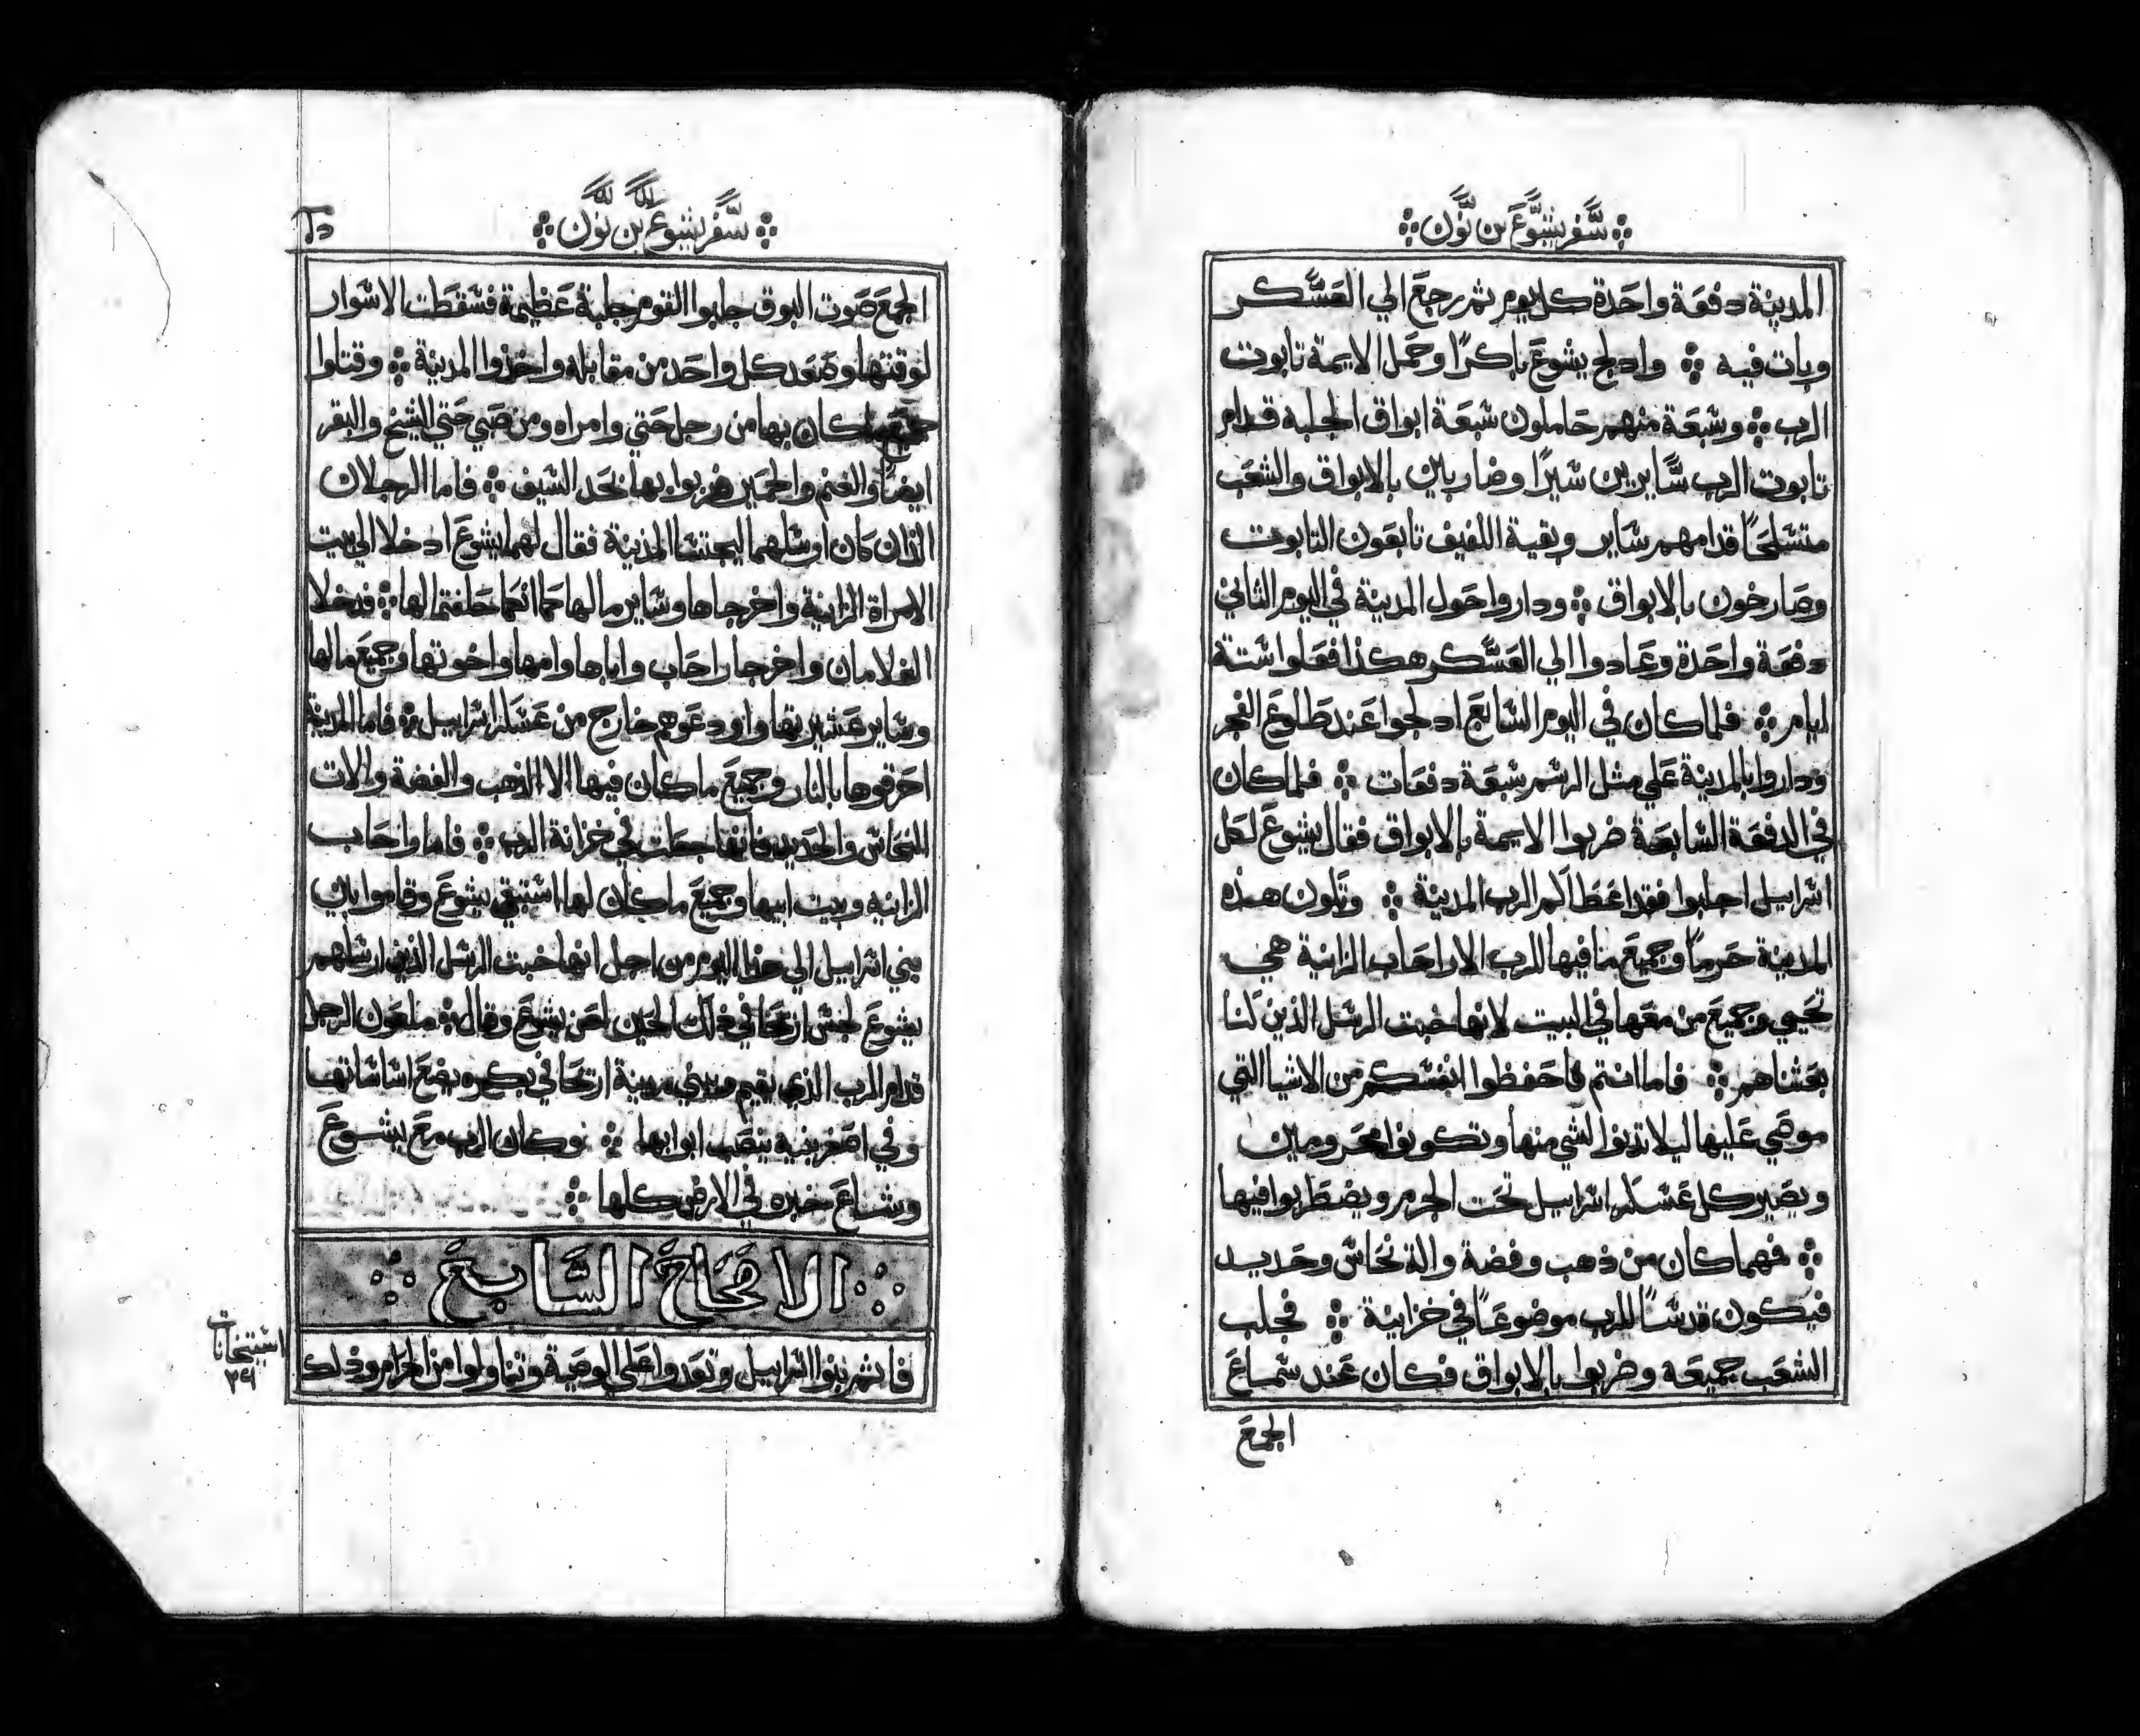 سفر يشوع بن نون
المدينة دفعة واحدة كل يوم ثم رجع الي العسكر
وبات فيه ❖ وادلج يشوع باكرًا وحمل الايمة تابوت
الرب ❖ وسبعة منهم حاملون سبعة ابواق الجلبه قدام
تابوت الرب سايرين سيرًا وضاربين بالابواق والشعب
متسلحًا قدامهم ساير وبقية اللفيف تابعون التابوت
وصارخون بالابواق ❖ وداروا حول المدينة في اليوم الثاني
دفعة واحدة وعادوا الي العسكر هكذا فعلوا ستة
ايام ❖ فلما كان في اليوم السابع ادلجوا عند طلوع الفجر
وداروا بالمدينة علي مثل الرسم سبعة دفعات ❖ فلما كان
في الدفعة السابعة ضربوا الايمة بالابواق فقال يشوع لكل
اسراييل اجلبوا فقد اعطاكم الرب المدينة ❖ وتكون هذه
المدينة حرمًا وجميع ما فيها للرب الا راحاب الزانية هي
تحيي وجميع من معها في البيت لانها خبت الرسل الذين لنا
بعثناهم ❖ فاما انتم فاحفظوا انفسكم من الاشيا التي
موهي عليها ليلا تدنوا لشي منها وتكونوا محرومين
ويصير كل عسكر اسراييل تحت الجرم ويضطربوا فيها
❖ فمهما كان من ذهب وفضة والة نحاس وحديد
فيكون قدسًا للرب موضوعًا في خزاينة ❖ فجلب
الشعب جميعه وضربوا بالابواق فكان عند سماع
الجمع
سفر يشوع بن نون
الجمع صوت البوق جلبوا القوم جلبة عظيمة فسقطت الاسوار
لوقتها وصعد كل واحد من مقابله واخذوا المدينة ❖ وقتلوا
جميع ما كان بها من رجل حتي وامراه ومن صبي حتي الشيخ والبقر
ايضًا والغنم والحمير ضربوا بها بحد السيف ❖ فاما الرجلان
الذان كان ارسلهما ليجتسا المدينة فقال لهما يشوع ادخلا الي بيت
الامراة الزانية واخرجاها وساير ما لها كما انكما حلفتما لها ❖ فدخلا
الغلامان واخرجا راحاب واباها وامها واخوتها وجميع ما لها
وساير عشيرتها واودعوهم خارج من عسكر اسراييل ❖ فاما المدينة
احرقوها بالنار وجميع ما كان فيها الا الذهب والفضة والات
النحاس والحديد فانها جعلت في خزانة الرب ❖ فاما راحاب
الزانيه وبيت ابيها وجميع ما كان لها استبقي يشوع وقاموا بين
بني اسراييل الي هذا اليوم من اجل انها خبت الرسل الذين ارسلهم
يشوع لجس ازيحا في ذلك الحين لعن يشوع وقال ❖ ملعون الرجل
قدام الرب الذي يقيم ويبني مدينة اريحا في بكره يضع اساساتها
وفي اصغر بنيه ينصب ابوابها ❖ وكان الرب مع يشوع
وشاع خبره في الارض كلها ❖
الاصحاح السابع
فاثم بنوا اسراييل وتعدوا علي الوصية وتناولوا من الحرام وذلك